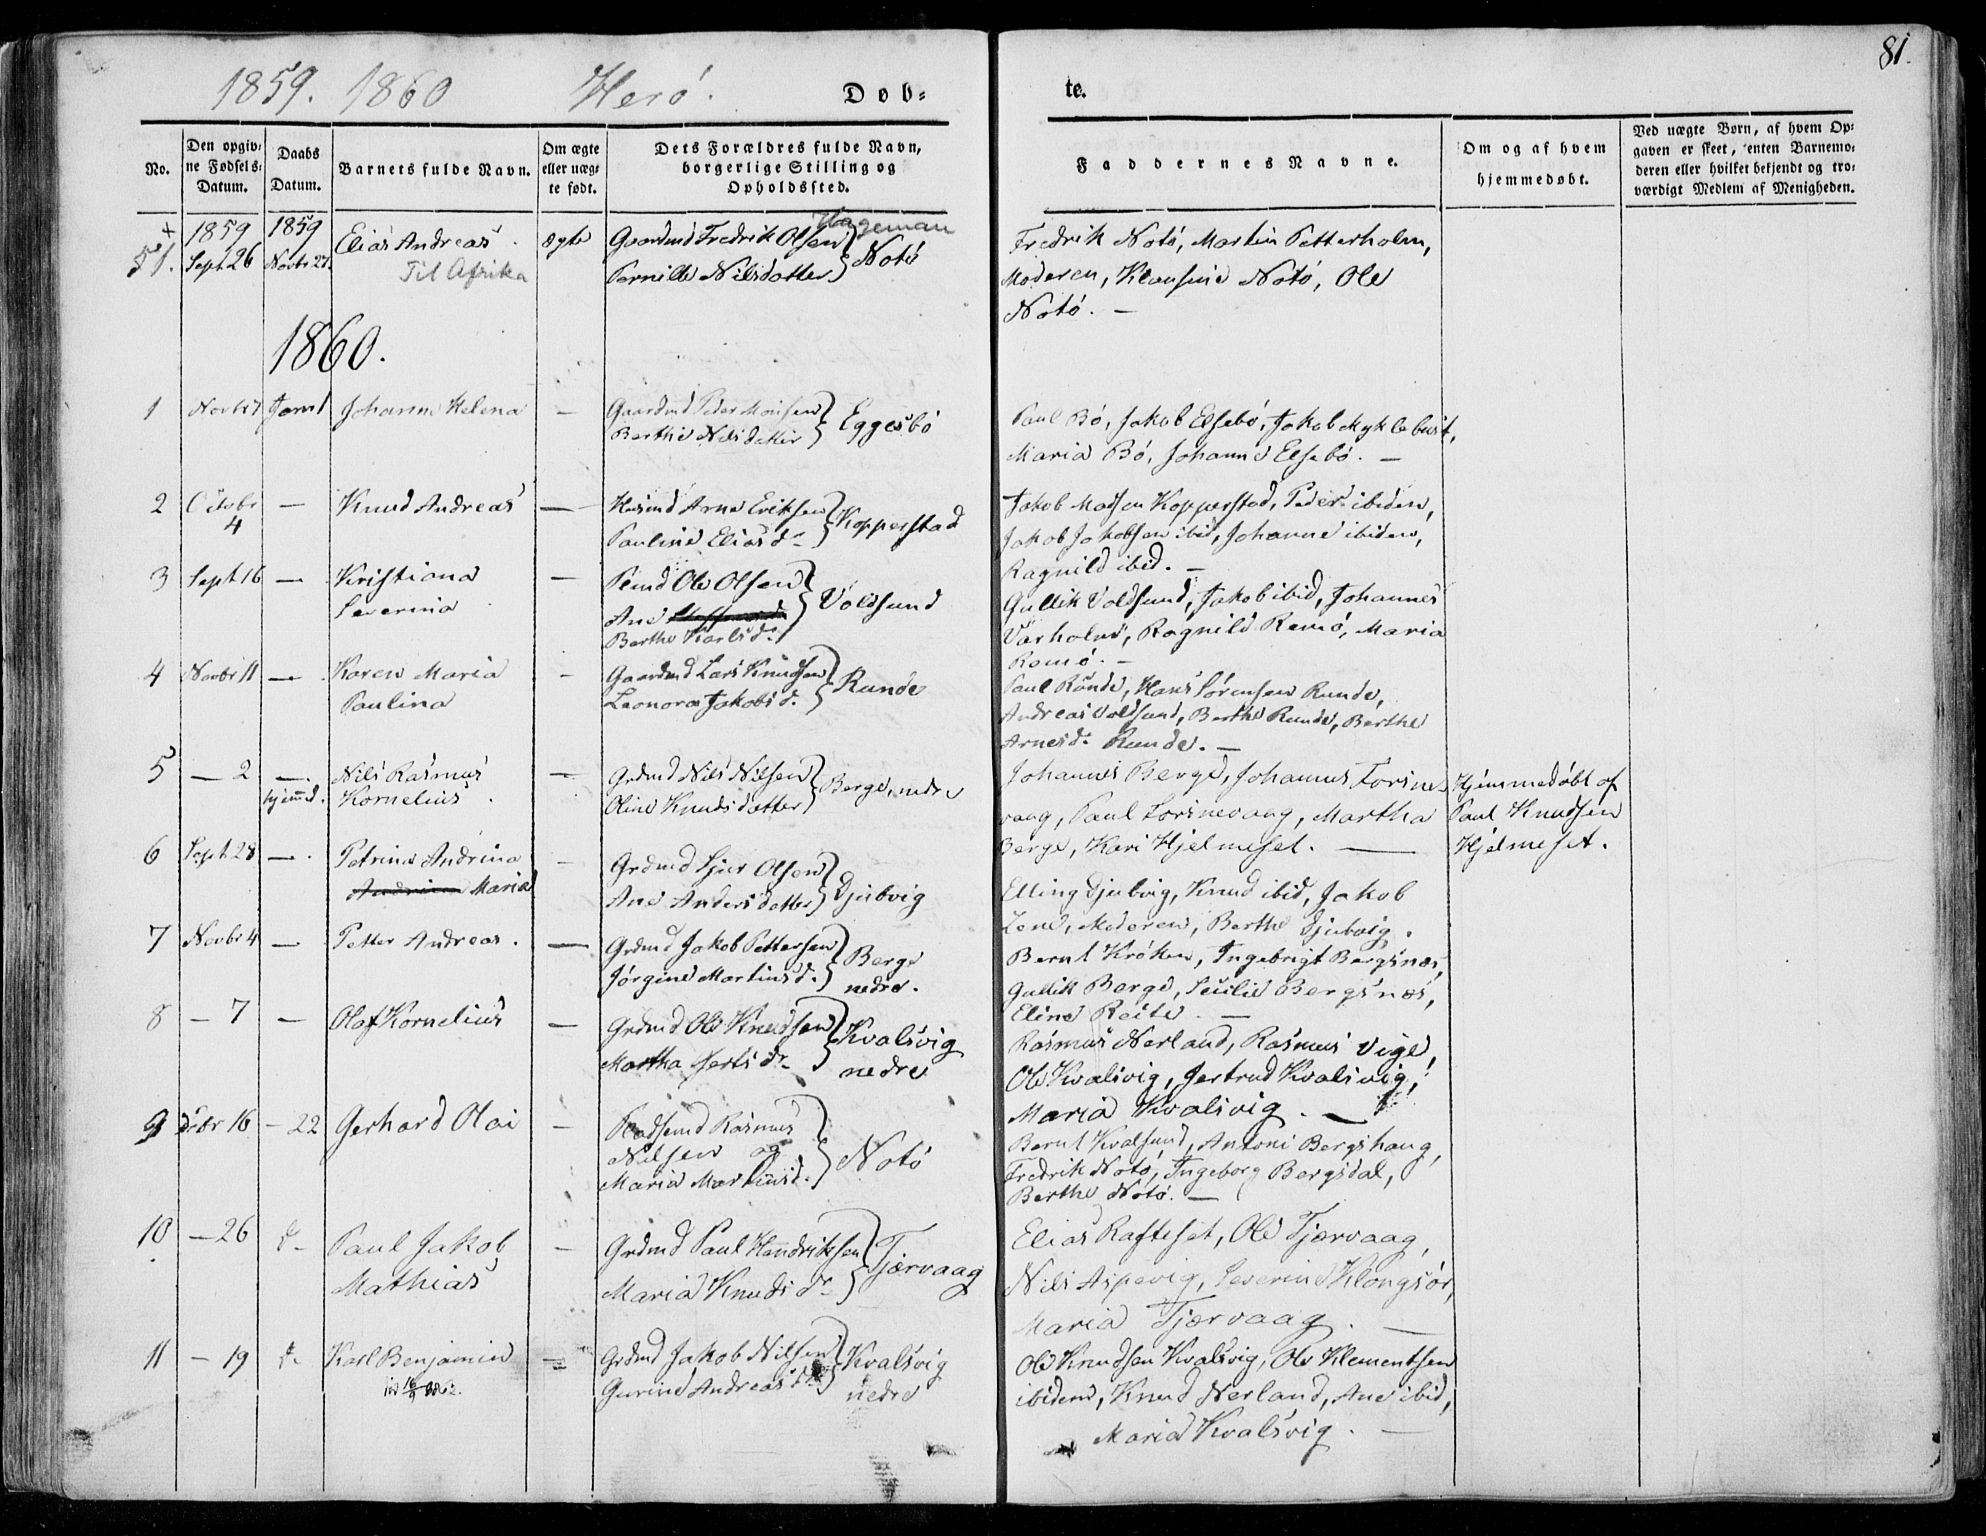 1859. 1860 Herö. Døb=
te. 81.
No.
Den opgiv=
ne Fødsels=
Datum.
Daabs
Datum.
Barnets fulde Navn.
Om ægte
eller uæg=
te født.
Dets Forældres fulde Navn,
borgerlige Stilling og
Opholdssted.
Faddernes Navne.
Om og af hvem
hjemmedøbt.
Ved uægte Børn, af hvem Op=
gaven er skeet, enten Barnemo=
deren eller hvilket bekjendt og tro=
værdigt Medlem af Menigheden.
+ 1859 1859 Elias Andreas. ægte Gaardmd Fredrik Olsen Hageman
51. Sept 26 Novbr 27 Til Afrika Pernille Nilsdatter } Notö
Fredrik Notö, Martin Petterholm,
Moderen, Klausine Notö, Ole
Notö. —
1860.
1 Novbr 7 Janr 1 Johanne Helena — Gaardmd Peder Monsen
Berthe Nilsdatter } Eggesbö
Paul Bö, Jakob Elsebö, Jakob Myklebust,
Maria Bö, Johanne Elsebö. —
2 Octobr 4 — Knud Andreas — Husmd Arne Eriksen
Pauline Eliasd. } Kopperstad
Jakob Madsen Kopperstad, Peder ibidem,
Jakob Jakobsen ibid, Johanne ibidem,
Ragnild ibid. —
3 Sept 16 — Kristiana — Ole Olsen
Severina Ane
Berthe Karlsd. } Voldsund
Gullik Voldsund, Jakob ibid, Johannes
Varholm, Ragnild Remö, Maria
Remö. —
4 Novbr 11 — Karen Maria — Gaardmd Lars Knudsen
Paulina Leonora Jakobsd. } Runde
Paul Runde, Hans Sörensen Runde,
Andreas Voldsund, Berthe Runde, Berthe
Arnesd. Runde. —
5 — 2 — Nils Rasmus — Grdmd Nils Nilsen
hjemmd. Kornelius. Oline Knudsdatter } Berge, nedre
Johannes Berge, Johannes Torsine
vaag, Paul Torsinevaag, Martha
Berge, Kari Hjelmeset. —
Hjemmedöbt af
Paul Knudsen
Hjelmeset.
6 Sept 28 — Petrine Andrina — Grdmd Sjur Olsen
Andrina Maria Ane Andersdatter } Djubvig
Elling Djubvig, Knud ibid, Jakob
Lene, Moderen, Berthe Djubvig.
7 Novbr 4 — Petter Andreas. — Grdmd Jakob Pettersen
Jörgine Martinsd. } Berge
nedre.
Bernt Kröken, Ingebrigt Bergsnes,
Gullik Berge, Secilie Bergsnes,
Eline Reite. —
8 — 7 — Olaf Kornelius — Grdmd Ole Knudsen
Martha Gertsd. } Kvalsvig
nedre
Rasmus Nerland, Rasmus Vige,
Ole Kvalsvig, Gertrud Kvalsvig,
Maria Kvalsvig. —
9 Decbr 16 — 22 Gerhard Olai — Pladsemd Rasmus
Nilsen og
Maria Martinsd. } Notö
Bernt Kvalsund, Antoni Bergshaug,
Fredrik Notö, Ingeborg Bergsdal,
Berthe Notö. —
10 — 26 d. Paul Jakob — Grdmd Paul Hendriksen
Mathias Maria Knudsd. } Tjærvaag
Elias Rafteset, Ole Tjærvaag,
Nils Aspevig, Severine Klongsör,
Maria Tjærvaag. —
11 — 19 d. Karl Benjamin — Grdmd Jakob Nilsen
Gurine Andreasd. } Kvalsvig
nedre
Ole Knudsen Kvalsvig, Ole Klementsen
ibidem, Knud Nerland, Ane ibid,
Maria Kvalsvig. —